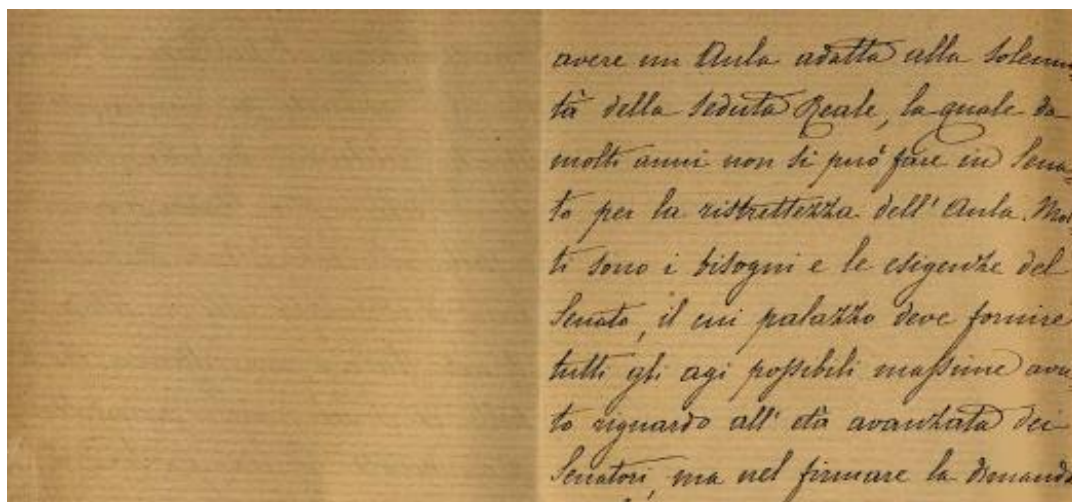 avere un Aula adatta alla solenni
tà della seduta Reale, la quale da
molti anni non si può fare in Sena=
to per la ristrettezza dell' Aula. Mol
ti sono i bisogni e le esigenze del
Senato, il cui palazzo deve fornire
tutti gli agi possibili massime avu
to riguardo all' età avanzata dei
Senatori, ma nel firmare la dimanda